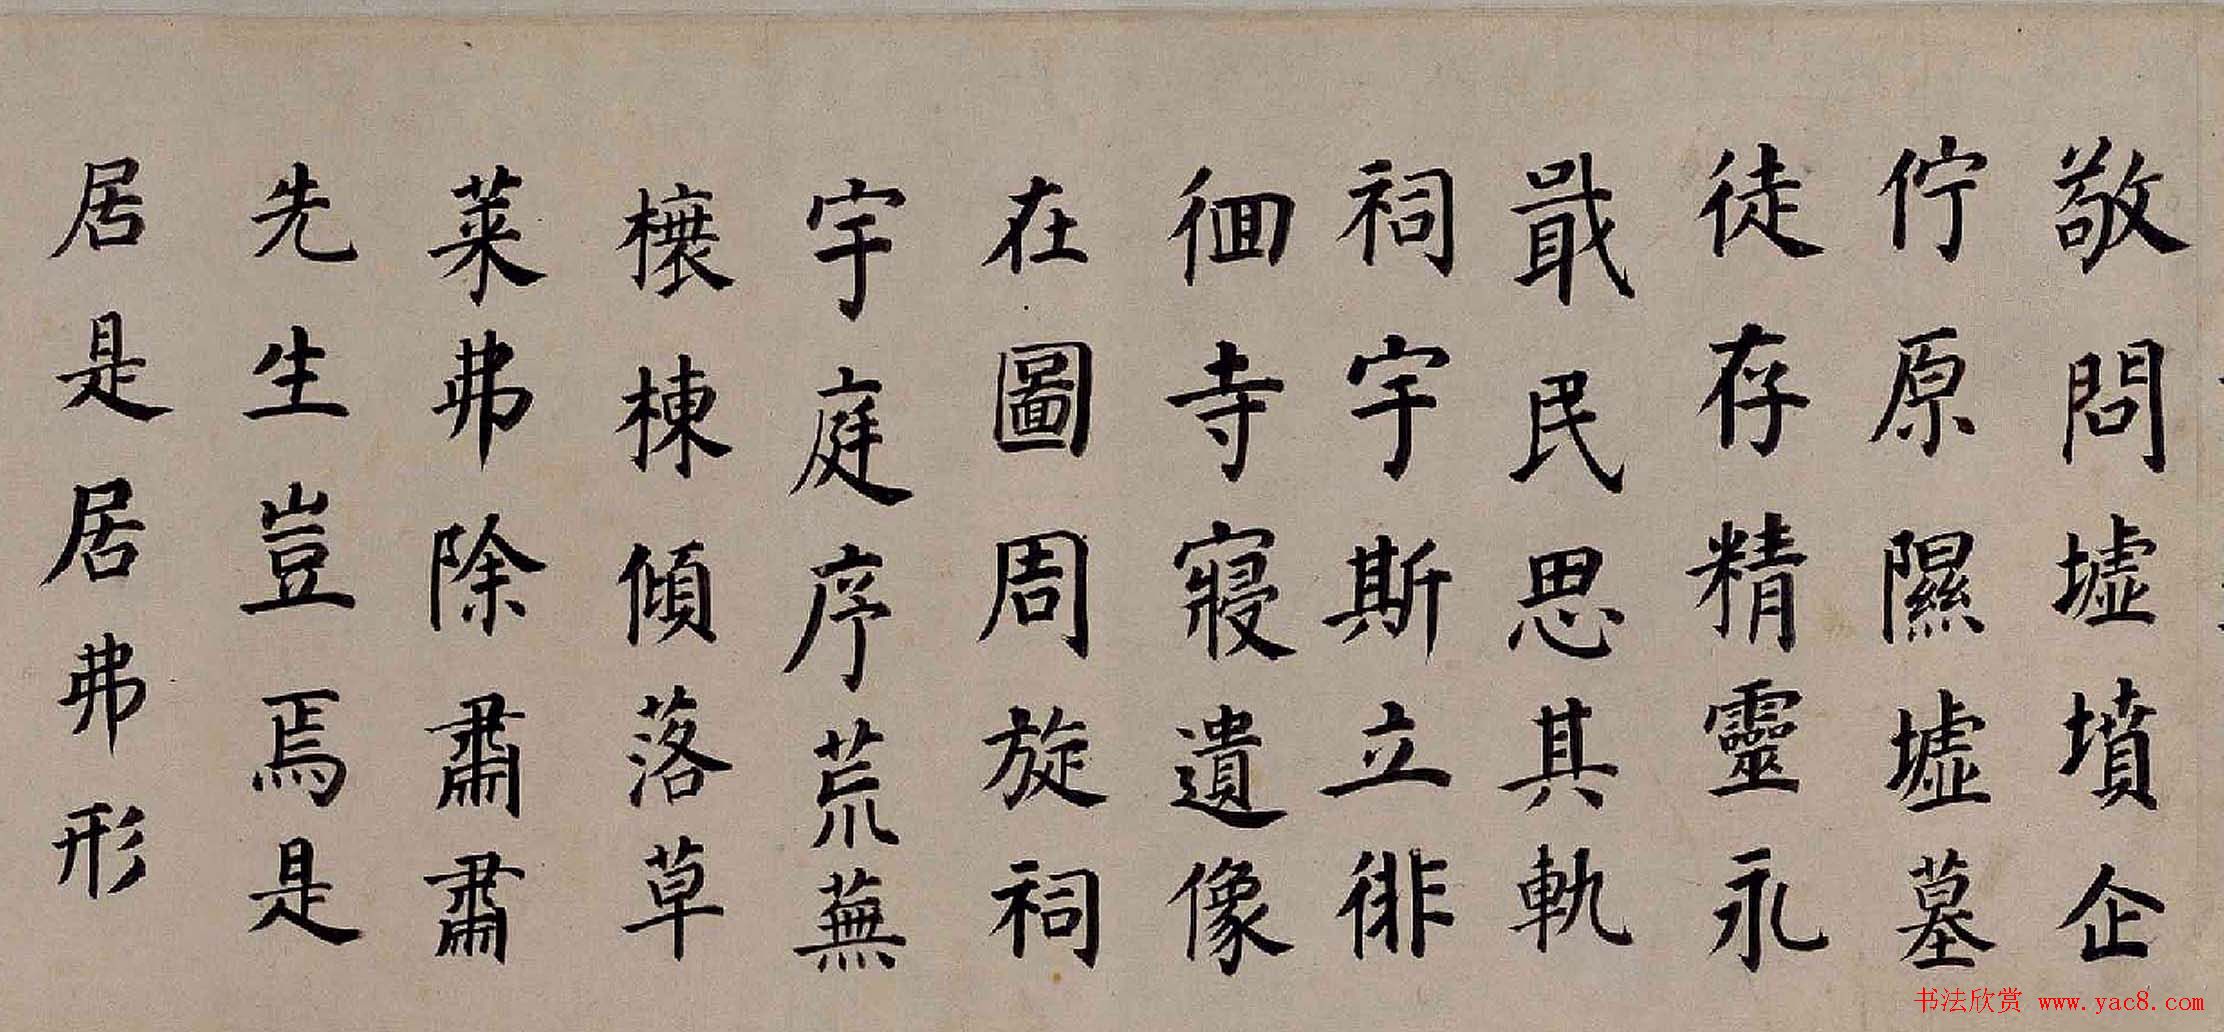 敬問墟墳企
佇原隰墟墓
徒存精靈永
戢民思其軌
祠宇斯立徘
徊寺寢遺像
在圖周旋祠
宇庭序荒蕪
榱棟傾落草
萊弗除肅肅
先生豈焉是
居是居弗形
书法欣赏 www.yac8.com